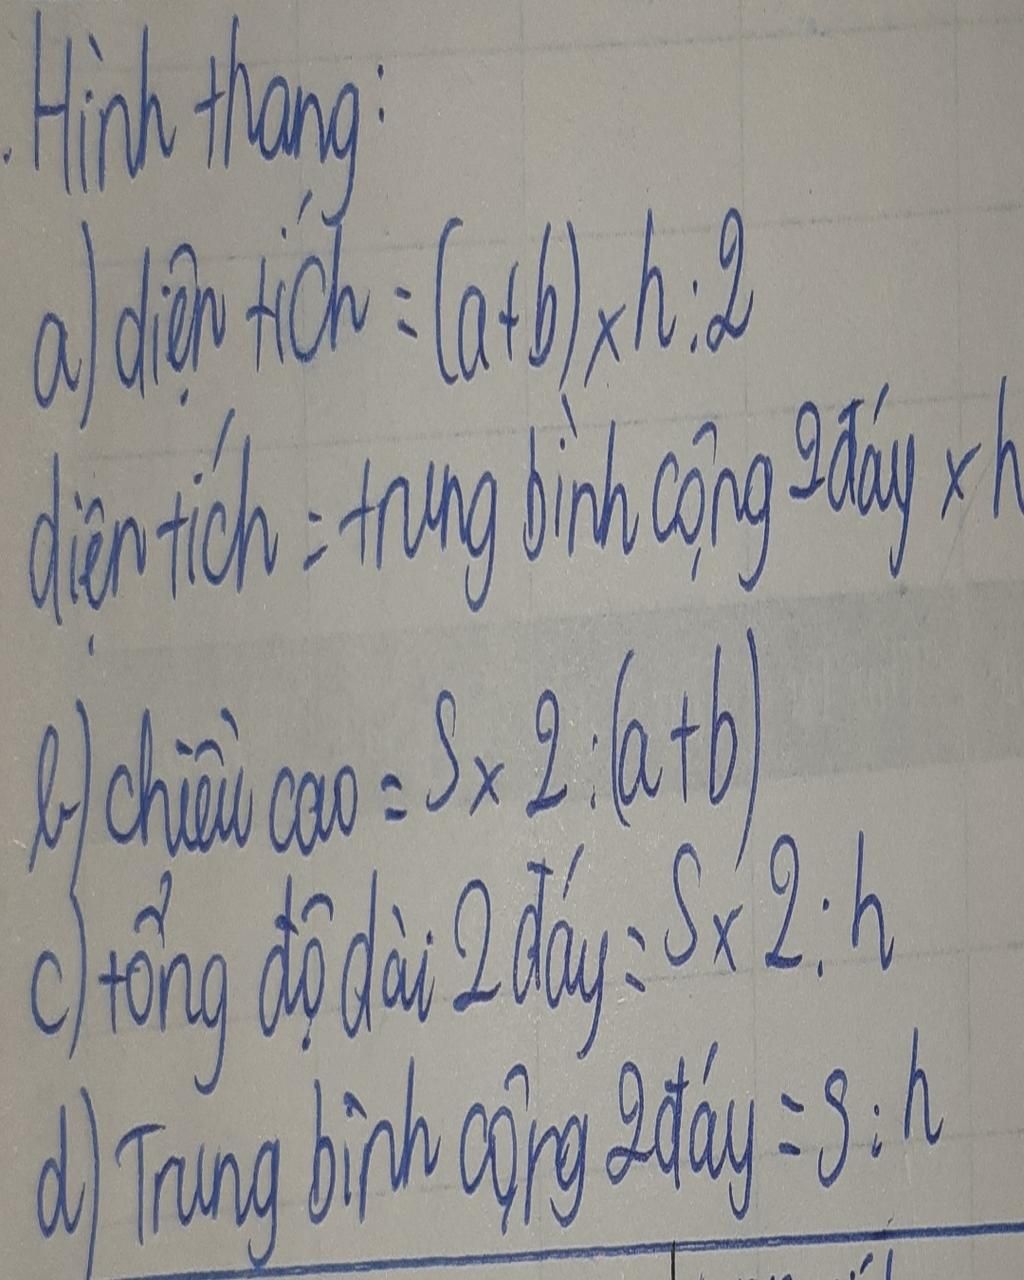 Hình thang:
a) diện tích = (a+b) x h : 2
diện tích = trung bình cộng 2 đáy x h
b) chiều cao = S x 2 : (a+b)
c) tổng độ dài 2 đáy = S x 2 : h
d) Trung bình cộng 2 đáy = S : h